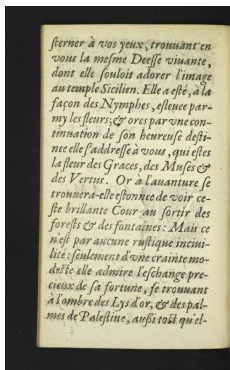 ſterner à vos yeux, trouuant en
vous la meſme Deeſſe viuante,
dont elle ſouloit adorer l'image
au temple Sicilien. Elle a eſté, à la
façon des Nymphes, eſleuee par-
my les fleurs; & ores par vne con-
tinuation de ſon heureuſe deſti-
nee elle ſ'addreſſe à vous, qui eſtes
la fleur des Graces, des Muſes &
des Vertus. Or à l'auanture ſe
trouuera-elle eſtonnee de voir ce-
ſte brillante Cour au ſortir des
foreſts & des fontaines: Mais ce
n'eſt par aucune ruſtique inciui-
lité; ſeulement d'vne crainte mo-
deſte elle admire l'eſchange pre-
cieux de ſa fortune, ſe trouuant
à l'ombre des Lys d'or, & des pal-
mes de Paleſtine, außi toſt qu'el-